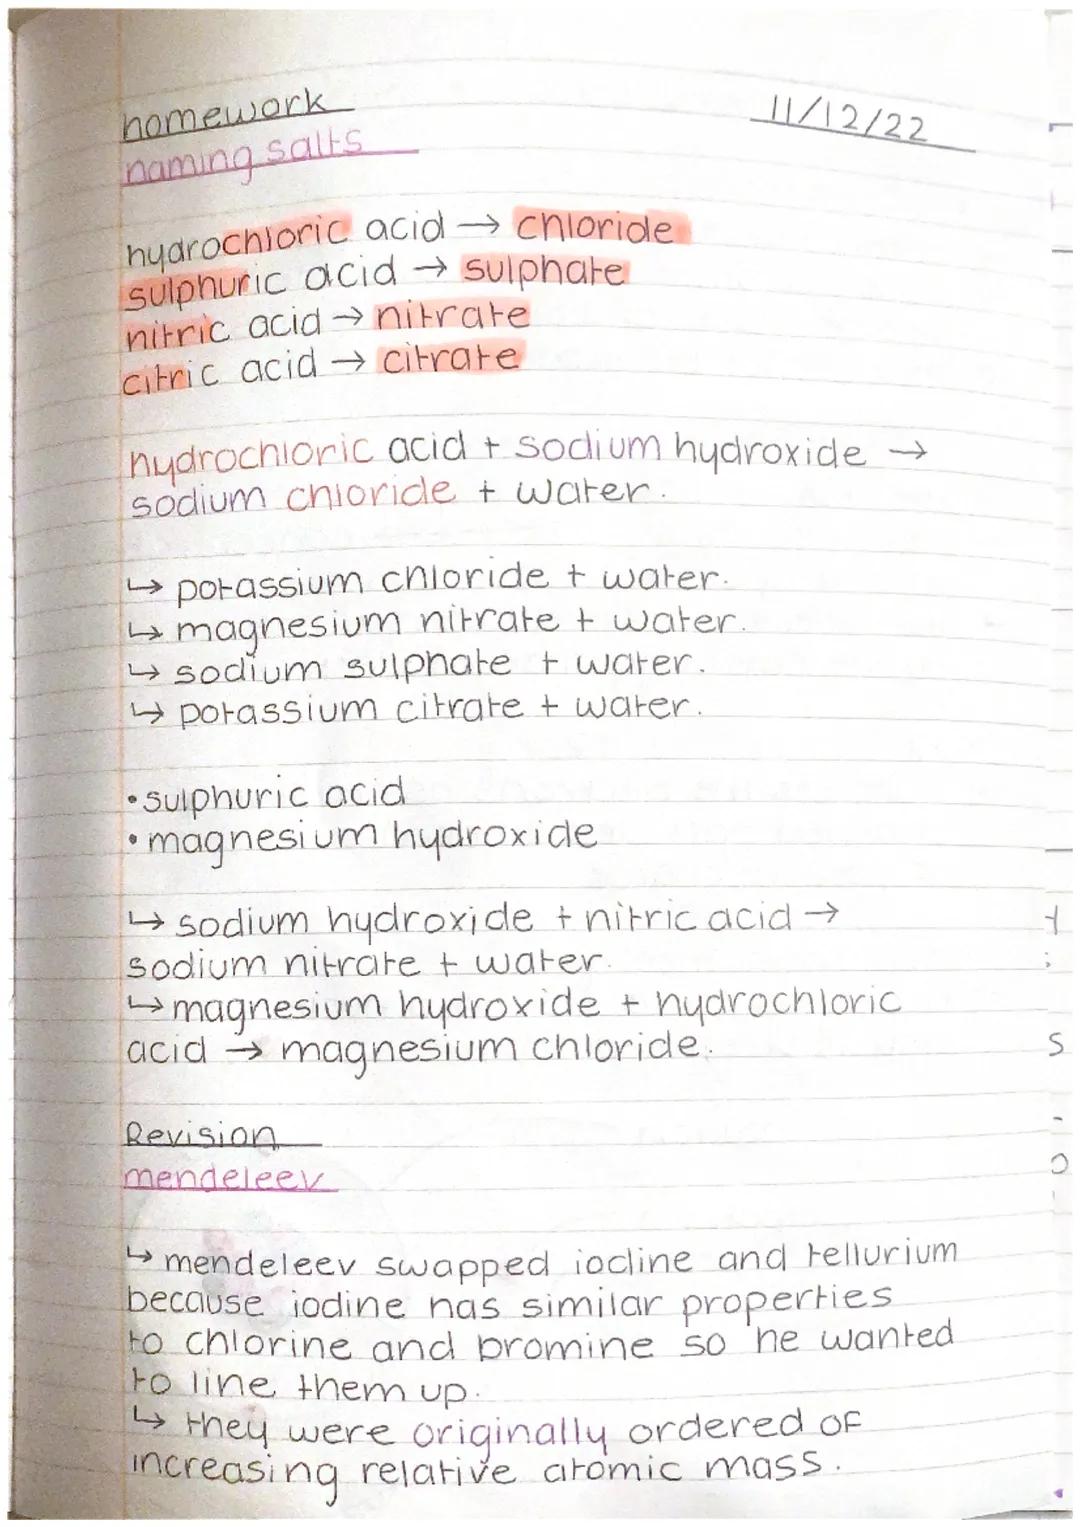 homework
11/12/22
naming salts
hydrochloric acid → chloride
sulphuric acid → sulphate
nitric acid → nitrate
citric acid → citrate
hydrochloric acid + sodium hydroxide →
sodium chloride + water.
↳ potassium chloride + water.
↳ magnesium nitrate + water.
↳ sodium sulphate + water.
↳ potassium citrate + water.
• sulphuric acid
• magnesium hydroxide
↳ sodium hydroxide + nitric acid →
sodium nitrate + water.
↳ magnesium hydroxide + hydrochloric
acid → magnesium chloride.
Revision
mendeleev
↳ mendeleev swapped iodine and tellurium
because iodine has similar properties
to chlorine and bromine so he wanted
to line them up.
↳ they were originally ordered of
increasing relative atomic mass.